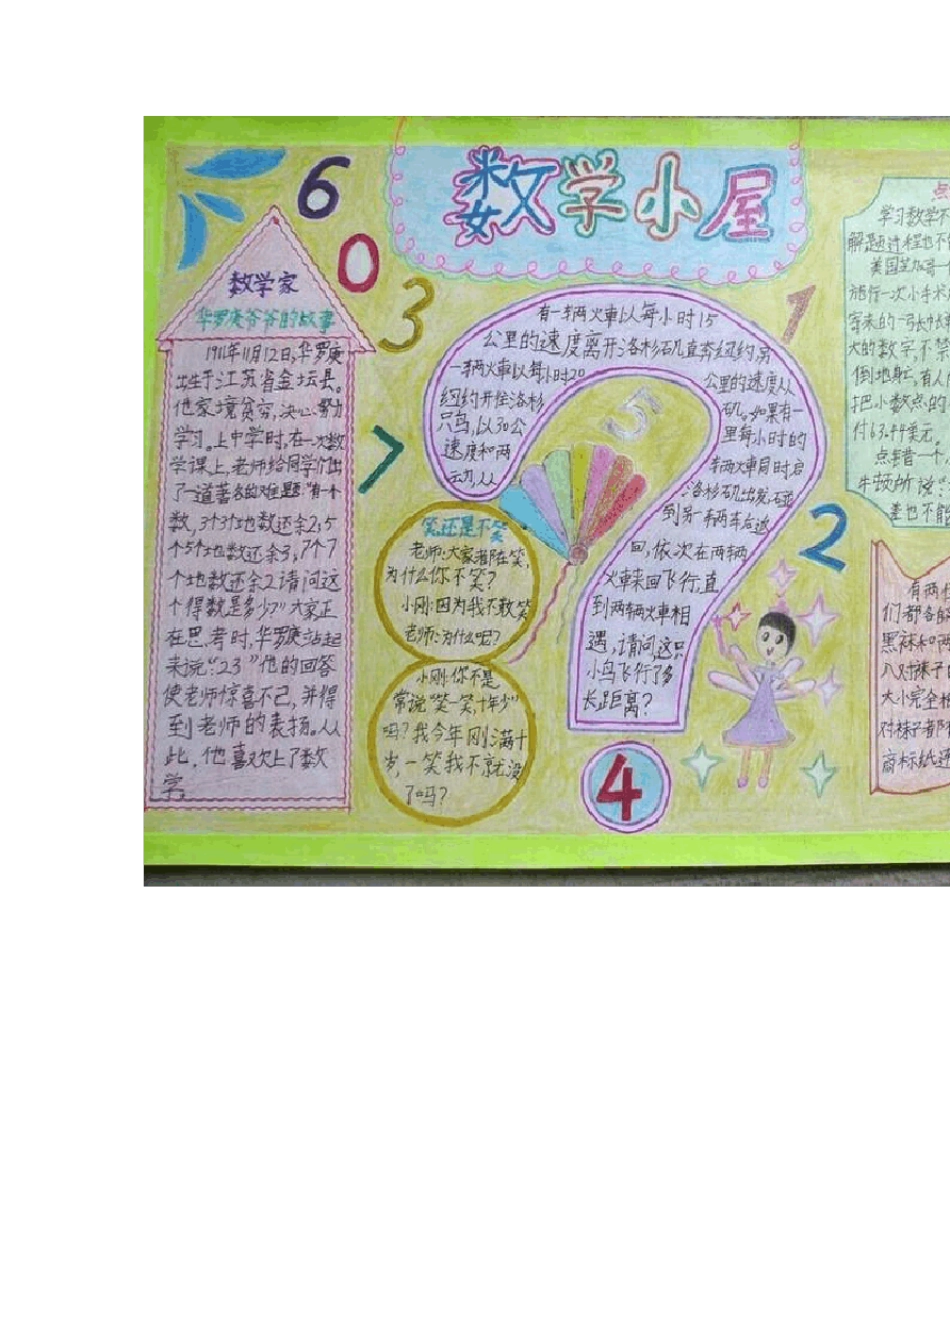 数学小屋
6
0
3
7
1
5
2
4
数学家
华罗庚爷爷的故事
1911年11月12日,华罗庚
出生于江苏省金坛县。
他家境贫穷,决心努力
学习。上中学时,在一次数
学课上,老师给同学们出
了一道著名的难题:"有一个
数,3个3个地数还余2;5
个5个地数还余3;7个7
个地数还余2,请问这
个得数是多少?"大家正
在思考时,华罗庚站起
来说:"23"他的回答
使老师惊喜不己,并得
到老师的表扬。从
此,他喜欢上了数
学。
有一辆火車以每小时15
公里的速度离开洛杉矶直奔纽约,另
一辆火車以每小时20
公里的速度从
纽约开往洛杉
矶。如果有一
只鸟,以30公
里每小时的
速度和两
辆火車同时启
动,从
洛杉矶出发,碰
到另一辆车后返
回,依次在两辆
火車来回飞行,直
到两辆火車相
遇,请问,这只
小鸟飞行了多
长距离?
笑还是不笑
老师:大家都在笑,
为什么你不笑?
小刚:因为我不敢笑
老师:为什么呢?
小刚:你不是
常说"笑一笑,十年少"
吗?我今年刚满十
岁,一笑我不就没
了吗?
学习数学不
解题过程也不
美国芝加哥一
施行一次小手术
寄来的一
大的数字,不
倒地身亡,有人
把小数点的
付63.44美元。
点错一个,
牛顿所说:"
差也不能
有两
们都各
黑袜和两
八对袜子
大小完全
对袜子都
商标纸连